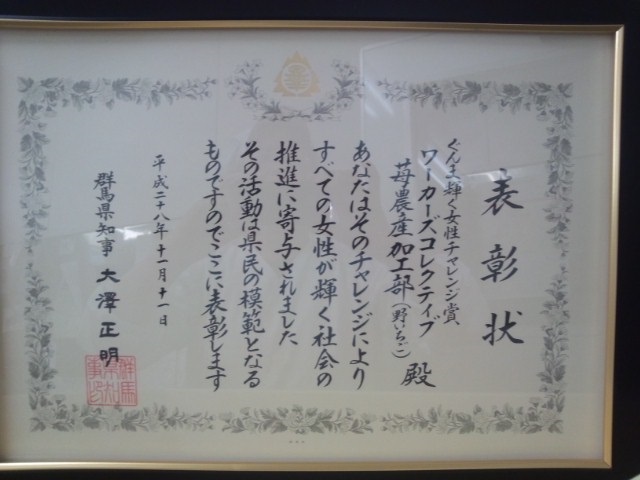 表彰状
ぐんま輝く女性チャレンジ賞
ワーカーズコレクティブ
苺農産加工部(野いちご) 殿
あなたはそのチャレンジにより
すべての女性が輝く社会の
推進に寄与されました
その活動は県民の模範となる
ものですのでここに表彰します
平成二十八年十一月十一日
群馬県知事 大澤正明
群馬県知事印